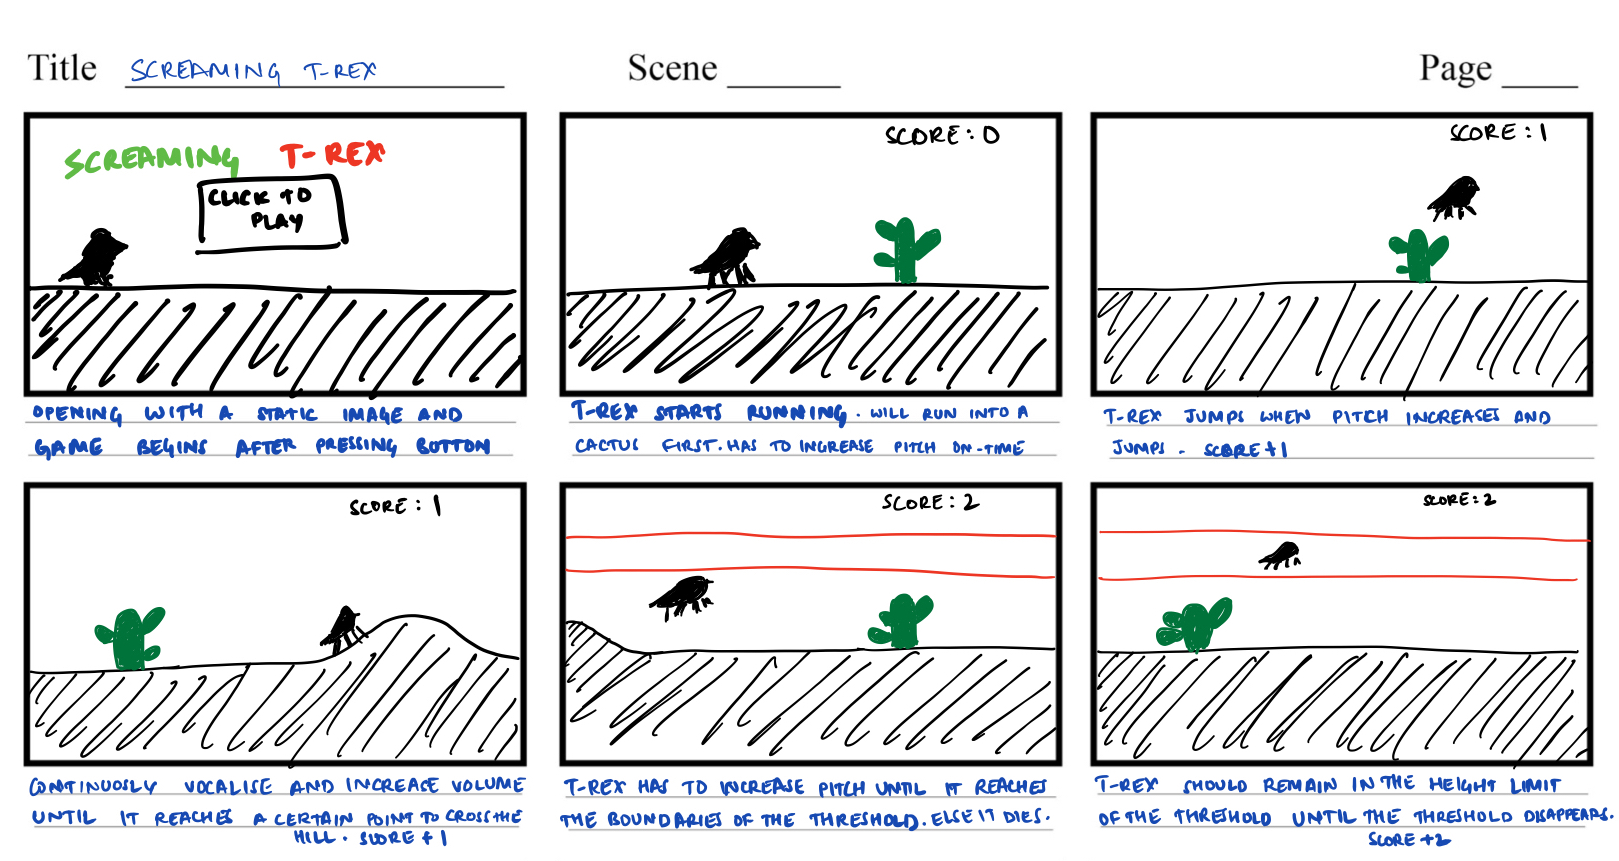 Title SCREAMING T-REX Scene Page
SCREAMING T-REX
CLICK TO
PLAY
OPENING WITH A STATIC IMAGE AND
GAME BEGINS AFTER PRESSING BUTTON
SCORE: 0
T-REX STARTS RUNNING. WILL RUN INTO A
CACTUS FIRST. HAS TO INCREASE PITCH ON-TIME
SCORE: 1
T-REX JUMPS WHEN PITCH INCREASES AND
JUMPS. SCORE +1
SCORE: 1
CONTINUOSLY VOCALISE AND INCREASE VOLUME
UNTIL IT REACHES A CERTAIN POINT TO CROSS THE
HILL. SCORE +1
SCORE: 2
T-REX HAS TO INCREASE PITCH UNTIL IT REACHES
THE BOUNDARIES OF THE THRESHOLD. ELSE IT DIES.
SCORE: 2
T-REX SHOULD REMAIN IN THE HEIGHT LIMIT
OF THE THRESHOLD UNTIL THE THRESHOLD DISAPPEARS.
SCORE +2